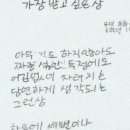 가장 받고 싶은 상
우덕 초등
6학년 1
아무 것도 하지않아도
짜증 섞인 투정에도
어김없이 차려지는
당연하게 생각되는
그런상
하루에 세번이나